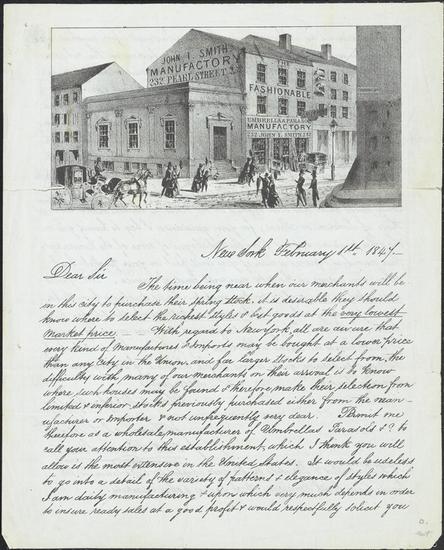 JOHN I. SMITH
MANUFACTORY
232 PEARL STREET
FASHIONABLE
UMBRELLA & PARASOL
MANUFACTORY
232 JOHN I. SMITH. 232
New York February 1st. 1847.
Dear Sir
The time being near when our merchants will be
in this city to purchase their spring stock, it is desirable they should
know where to select the richest styles & best goods at the very lowest
market price. — With regard to New York, all are aware that
every kind of manufactures & Imports may be bought at a lower price
than any City in the Union, and far larger stocks to select from, the
difficulty with many of our merchants on their arrival is to know
where such houses may be found & therefore make their selection from
limited & inferior stocks previously purchased either from the man-
ufacturer or Importer & not unfrequently very dear. Permit me
therefore as a wholesale manufacturer of Umbrellas Parasols &? to
call your attention to this establishment, which I think you will
allow is the most extensive in the United States. It would be useless
to go into a detail of the variety of patterns & elegance of styles which
I am daily manufacturing & upon which very much depends in order
to insure ready sales at a good profit & would respectfully solicit you